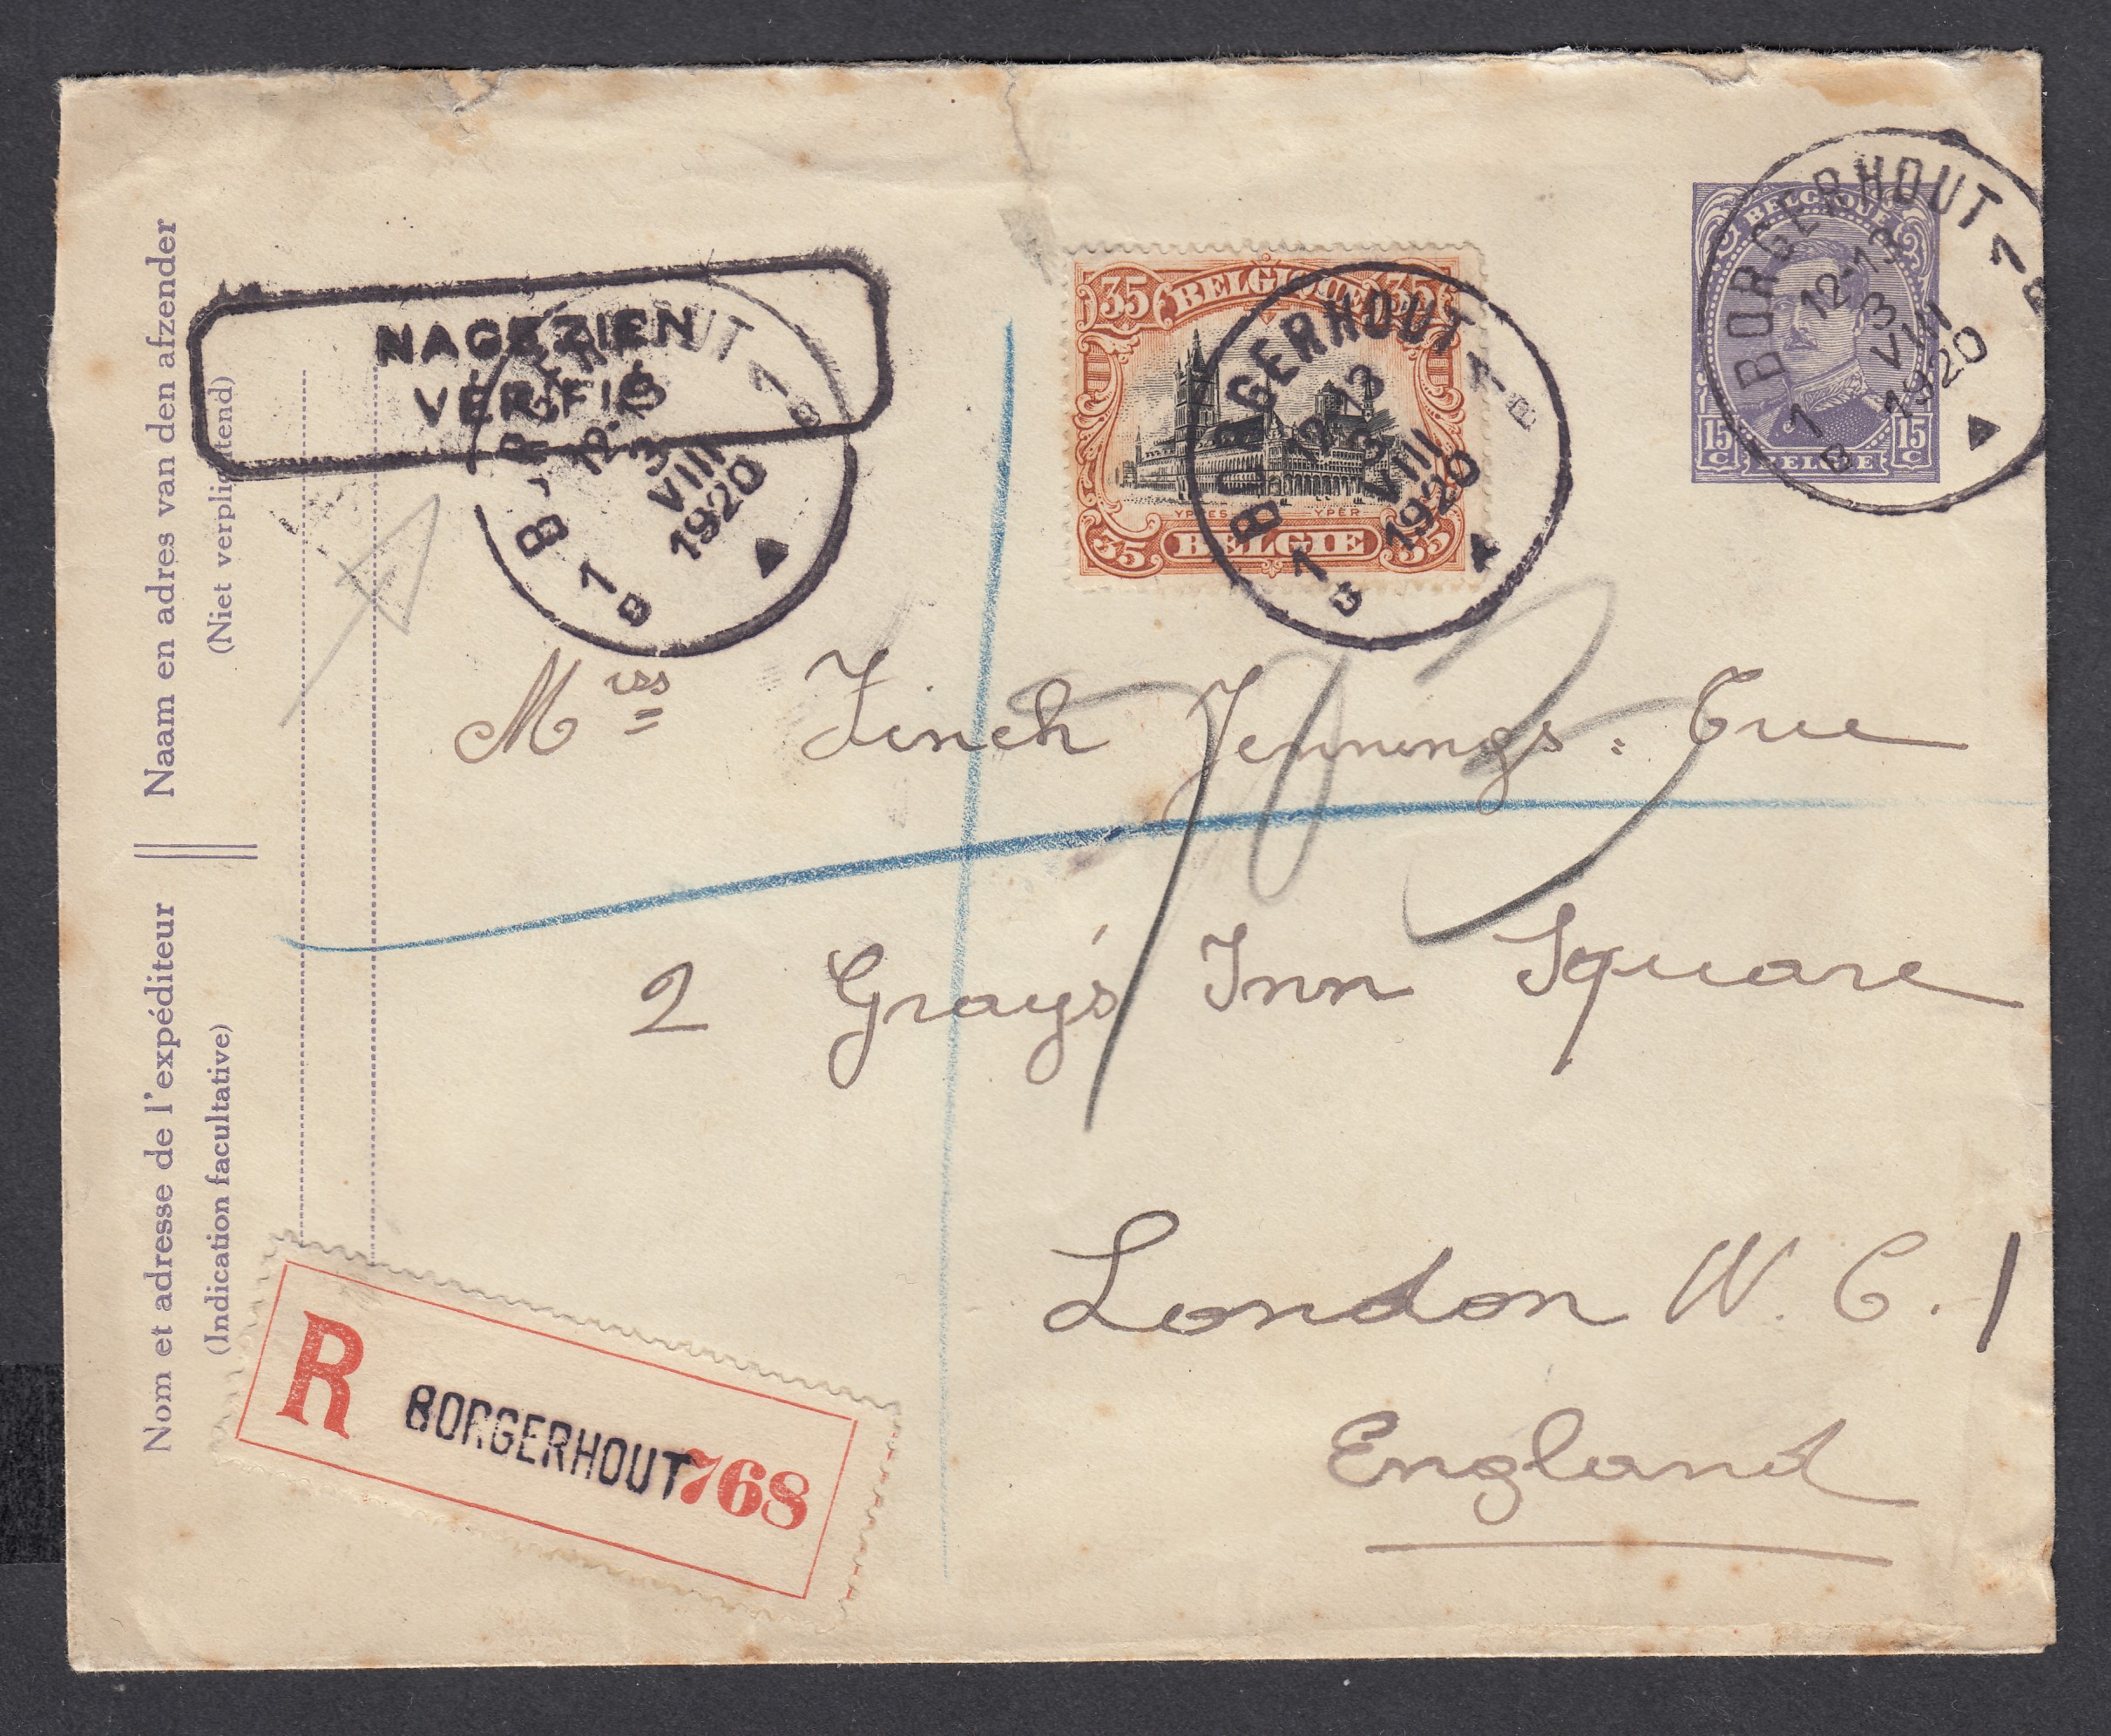 Naam en adres van den afzender
(Niet verplichtend)
Nom et adresse de l'expéditeur
(Indication facultative)
NAGEZIEN
VÉRIFIÉ
BORGERHOUT 1
12-13
3
VIII
1920
1
B
35 BELGIQUE 35
YPRES YPER
35 BELGIE 35
BORGERHOUT 1
B
12-13
3
VIII
1920
1
B
BELGIQUE
15 C BELGIE 15 C
BORGERHOUT 1
B
12-13
3
VIII
1920
1
B
Miss Finch Jennings
2 Gray's Inn Square
London W.C.1
England
R BORGERHOUT 768